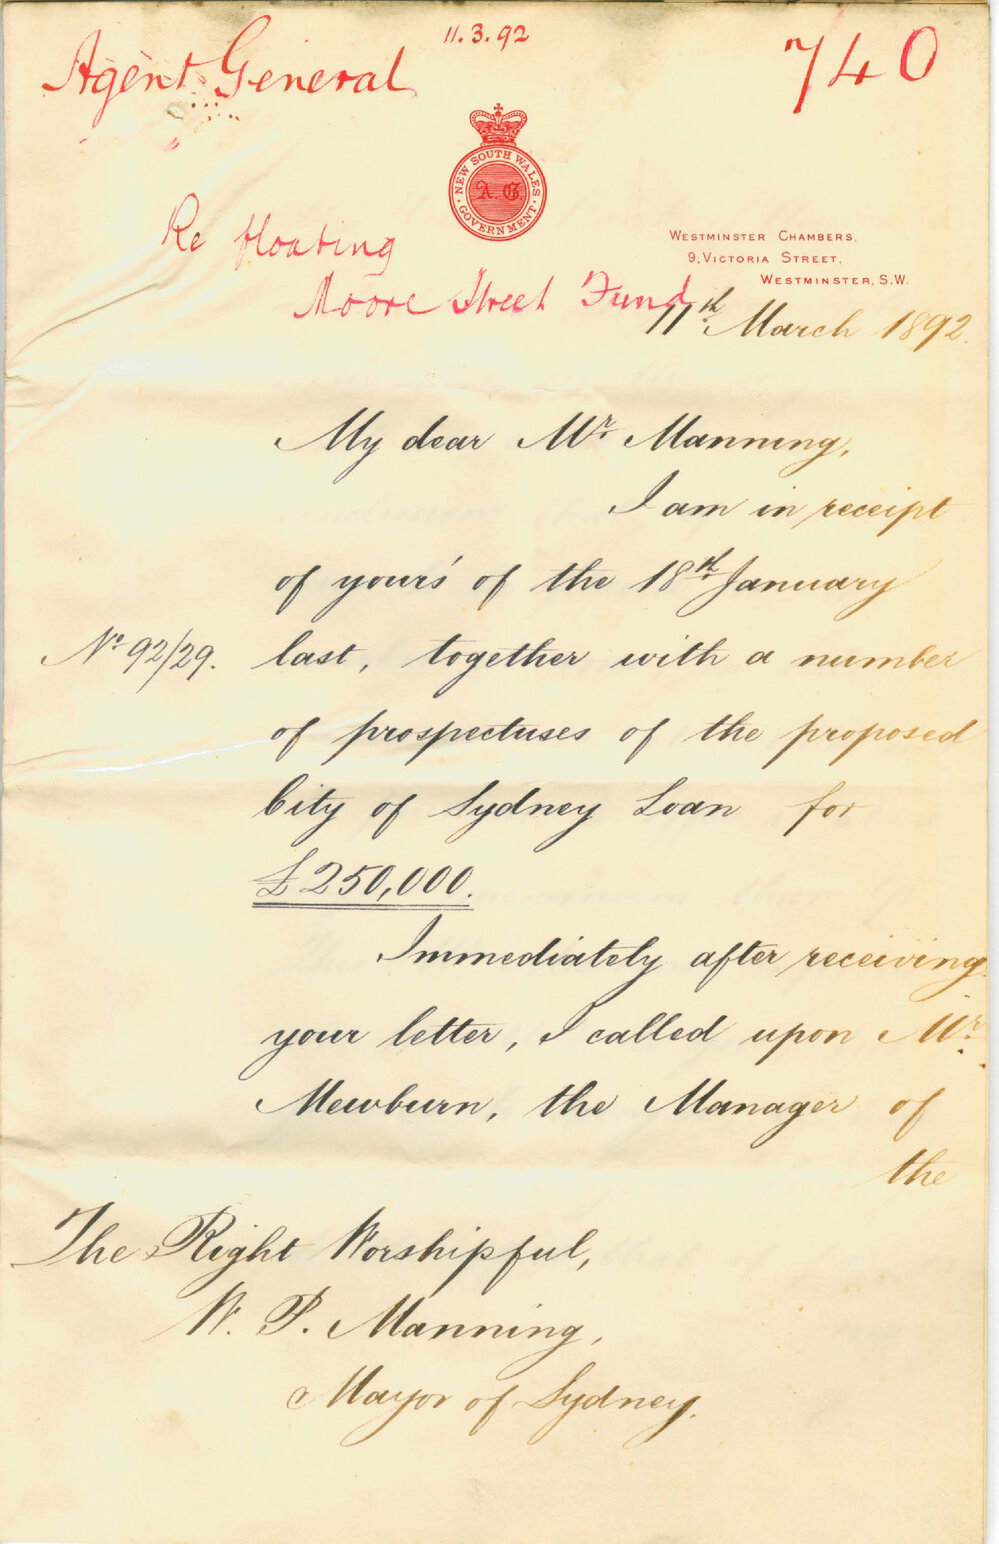 11.3.92
Agent General
740
NEW SOUTH WALES
A.G.
GOVERNMENT
Re floating
Moore Street Fund
WESTMINSTER CHAMBERS,
9, VICTORIA STREET,
WESTMINSTER, S.W.
11th March 1892.
My dear Mr. Manning,
I am in receipt
of yours' of the 18th January
No. 92/29.
last, together with a number
of prospectuses of the proposed
City of Sydney Loan for
£250,000.
Immediately after receiving
your letter, I called upon Mr.
Mewburn, the Manager of
the
The Right Worshipful,
W. P. Manning,
Mayor of Sydney.